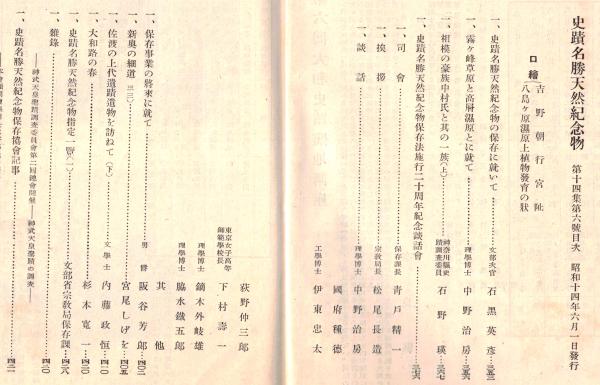 史蹟名勝天然紀念物 第十四集第六號目次 昭和十四年六月一日發行
口繪
吉野朝行宮阯
八島ヶ原濕原上植物發育の狀
一、史蹟名勝天然紀念物の保存に就いて 文部次官 石黑英彦
一、霧ヶ峰草原と高層濕原とに就て 理學博士 中野治房
一、相模の豪族中村氏と其の一族(上) 神奈川縣史蹟調査委員 石野瑛
一、史蹟名勝天然紀念物保存法施行二十周年紀念談話會
一、司會 保存課長 青戸精一
一、挨拶 宗敎局長 松尾長造
一、談話 理學博士 中野治房
國府種德
工學博士 伊東忠太
荻野仲三郎
東京女子高等師範學校長 下村壽一
理學博士 鏑木外岐雄
理學博士 脇水鐵五郎
其他
一、保存事業の將來に就て 男爵 阪谷芳郎
一、新奥の細道(三) 宮尾しげを 四〇五
一、佐渡の上代遺蹟遺物を訪ねて(下) 文學士 內藤政恒 四一〇
一、大和路の春 杉本寛一
一、史蹟名勝天然紀念物指定一覽(一) 文部省宗敎局保存課 四二八
一、雜錄 四三〇
神武天皇聖蹟調査委員會第二回總會開催 神武天皇聖蹟の調査
一、史蹟名勝天然紀念物保存協會記事